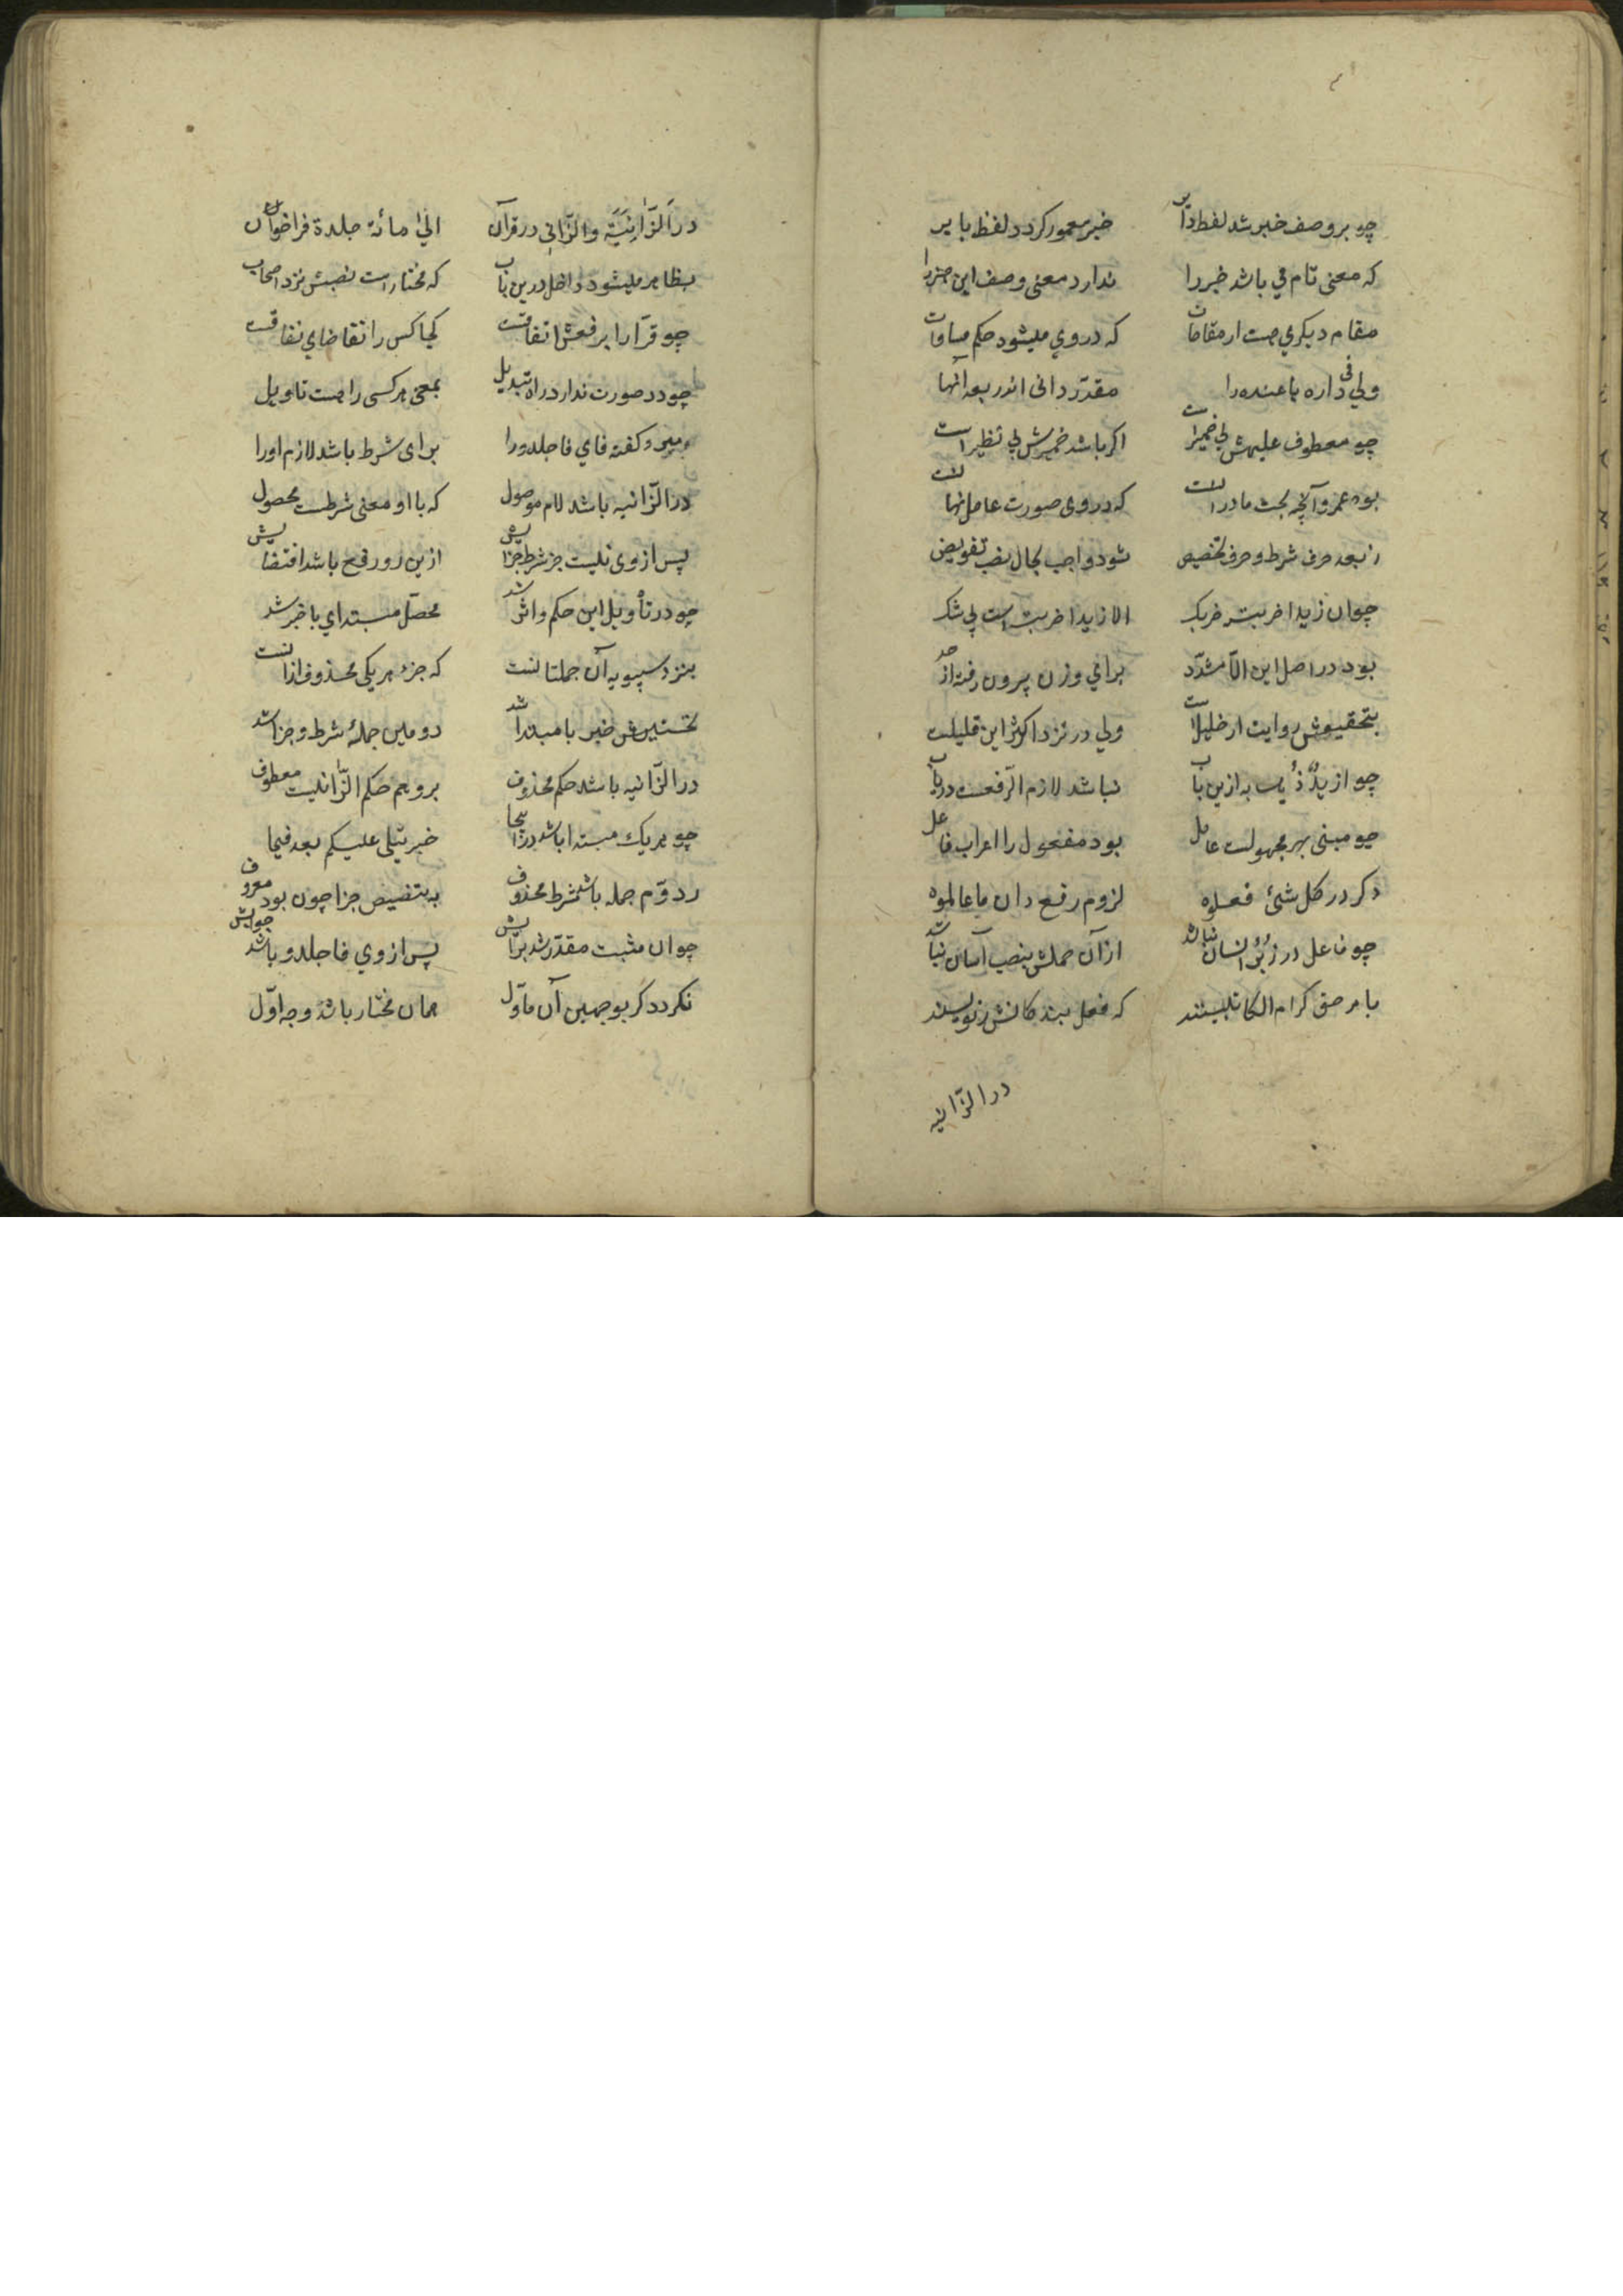 چو بر وصف خبر شد لفظ دائر خبر معمور کردد لفظ بایر
که معنی تام فی باشد خبر را ندارد معنی وصف این خبر را
مقام دیکری هست از مقامات که در وی میشود حکم مساوات
ولی فی داره یا عنده را مقدّر دانی اندر بعد آنها
چو معطوف علیهش بی ضمیر است اکر باشد ضمیرش بی نظیر است
بود عمرو آنچه بحث ما در انست که در وی صورت عامل نهانست
ز بعد حرف شرط و حرف تخصیص شود واجب بحال نصب تفویض
چو ان زیدا ضربت ضربک الا زیدا ضربت است بی شک
بود در اصل این الاّ مشدّد برای وزن بیرون رفته از حد
بتحقیقش روایت از خلیل است ولی در نزد اکثر این قلیلست
چو ازیدٌ ذُهِب به ازین باب نباشد لازم الرّفعست دریاب
چو مبنی بهر مجهولست عامل بود مفعول را اعراب فاعل
دکر در کل شئ فعلوه لزوم رفع دان یا عالموه
چو فاعل در زُبُر انسان نباشد از آن حملش بنصب آسان نباشد
بامر حق کرام الکاتبینند که فعل بندکانش مینویسند
در الزّانیه
در اَلزّانِیَة والزّانی در قرآن الیٰ مائة جلدة فراخوان
بظاهر میشود داخل درین باب که مختار است نصبش نزد اصحاب
چو قرّا را برفعش اتفاقست کجا کس را تقاضای نفاقست
چو در صورت ندارد راه تبدیل بمعنی هرکسی را هست تاویل
مبرد کفته فای فاجلدو را برای شرط باشد لازم اورا
در الزّانیه باشد لام موصول که با او معنی شرطست محصول
پس از وی نیست جز شرط جزایش ازین رو رفع باشد اقتضایش
چو در تأویل این حکم واثر شد محصّل مبتدای با خبر شد
بنزد سیبویه آن جملتانست که جزء هریکی محذوف از انست
نخستینش خبر با مبتدا شد دومین جملهٔ شرط و جزا شد
در الزّانیه باشد حکم محذوف برو هم حکم الزّانیست معطوف
چو هریک مبتدا باشد در اینجا خبر یتلی علیکم بعد فیما
ز دوّم جمله باشد شرط محذوف به تنصیص جزا چون بود معروف
چو ان مثبت مقدّر شد برایش پس از وی فاجلدو باشد جوابش
نکردد کر بوجهین آن ماوّل همان مختار باشد وجه اوّل